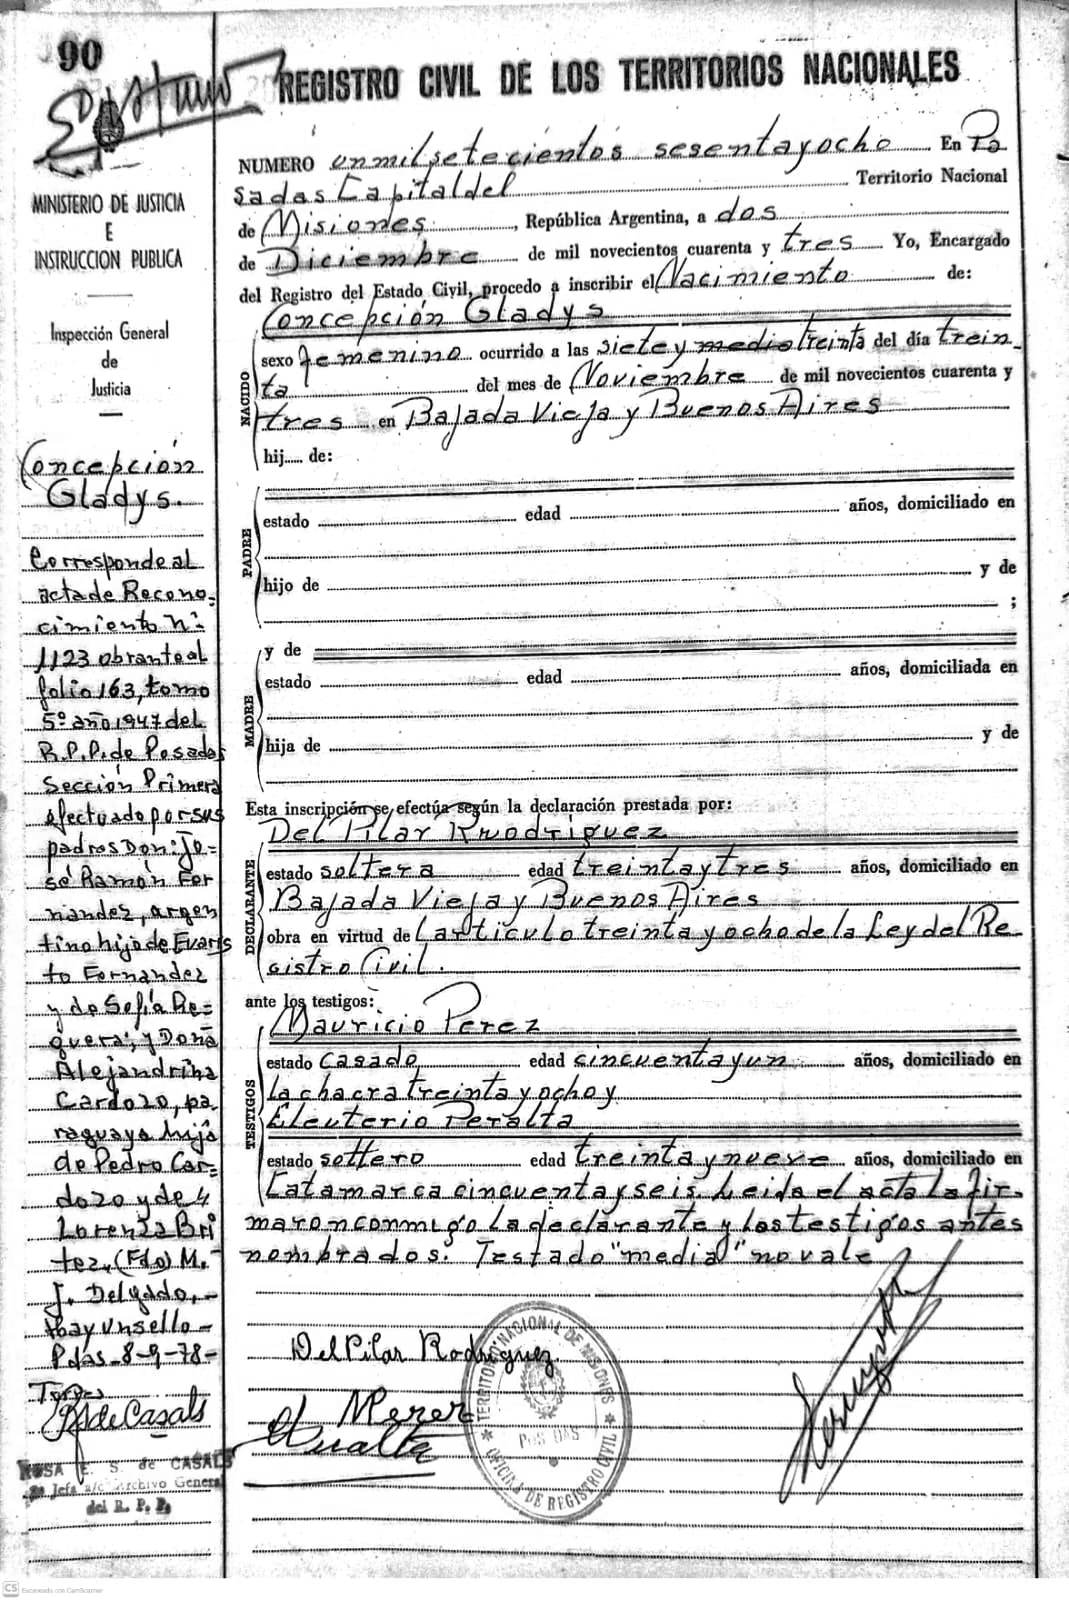 90
REGISTRO CIVIL DE LOS TERRITORIOS NACIONALES
MINISTERIO DE JUSTICIA
E
INSTRUCCION PUBLICA
Inspección General
de
Justicia
Concepción
Gladys.
Corresponde al
acta de Recono=
cimiento Nº
1123 obrante al
folio 163, tomo
5º año 1947 del
R.P.P. de Posadas
Sección Primera
efectuado por sus
padres Don: Jo=
sé Ramón Fer
nandez, argen
tino hijo de Evaris
to Fernandez
y de Sofía Re=
guera; y Doña
Alejandrina
Cardozo, pa
raguaya hija
de Pedro Car-
dozo y de
Lorenza Bri
tez, (Fdo) M.
J. Delgado.-
Hay un sello-
Pdas-8-9-78-
RdeCasals
ROSA E. S. de CASALS
Jefa a/c Archivo General
del R. P. P.
NUMERO un mil setecientos sesenta y ocho En Po
sadas Capital del Territorio Nacional
de Misiones, República Argentina, a dos
de Diciembre de mil novecientos cuarenta y tres Yo, Encargado
del Registro del Estado Civil, procedo a inscribir el Nacimiento de:
Concepción Gladys
NACIDO
sexo femenino ocurrido a las siete y media treinta del día trein
ta del mes de Noviembre de mil novecientos cuarenta y
tres en Bajada Vieja y Buenos Aires
hij..... de:
PADRE
estado edad años, domiciliado en
hijo de y de
;
MADRE
y de
estado edad años, domiciliada en
hija de y de
Esta inscripción se efectúa según la declaración prestada por:
DECLARANTE
Del Pilar Rodriguez
estado soltera edad treinta y tres años, domiciliado en
Bajada Vieja y Buenos Aires
obra en virtud de l articulo treinta y ocho de la Ley del Re
gistro Civil.
ante los testigos:
TESTIGOS
Mauricio Perez
estado casado edad cincuenta y un años, domiciliado en
la chacra treinta y ocho y
Eleuterio Peralta
estado soltero edad treinta y nueve años, domiciliado en
Catamarca cincuenta y seis. Leida el acta la fir-
maron conmigo la declarante y los testigos antes
nombrados. Testado "media" no vale
Del Pilar Rodriguez.
M Perez
Peralta
TERRITORIO NACIONAL DE MISIONES
POSADAS
OFICINA DE REGISTRO CIVIL
CS Escaneado con CamScanner